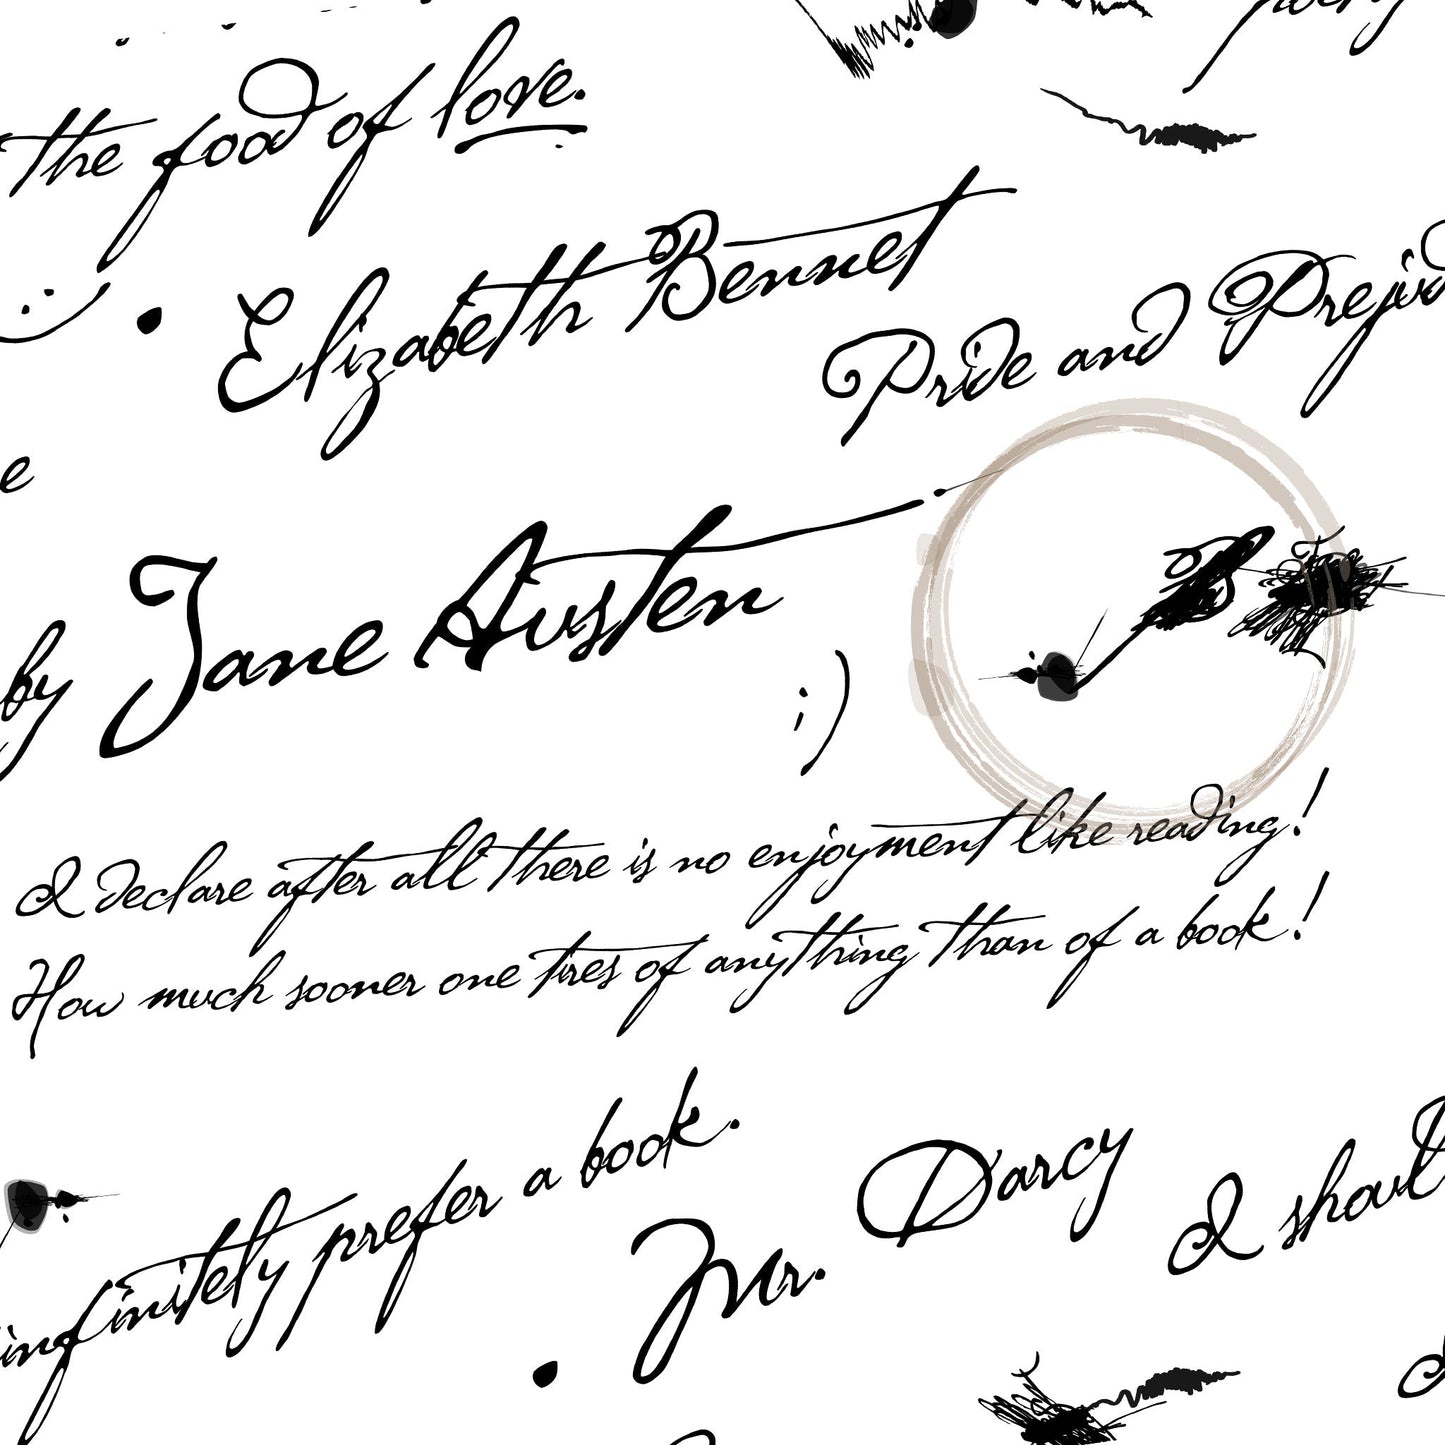 the food of love.
Elizabeth Bennet
Pride and
e
by Jane Austen
;)
I declare after all there is no enjoyment like reading!
How much sooner one tires of anything than of a book!
infinitely prefer a book.
Mr. Darcy
I